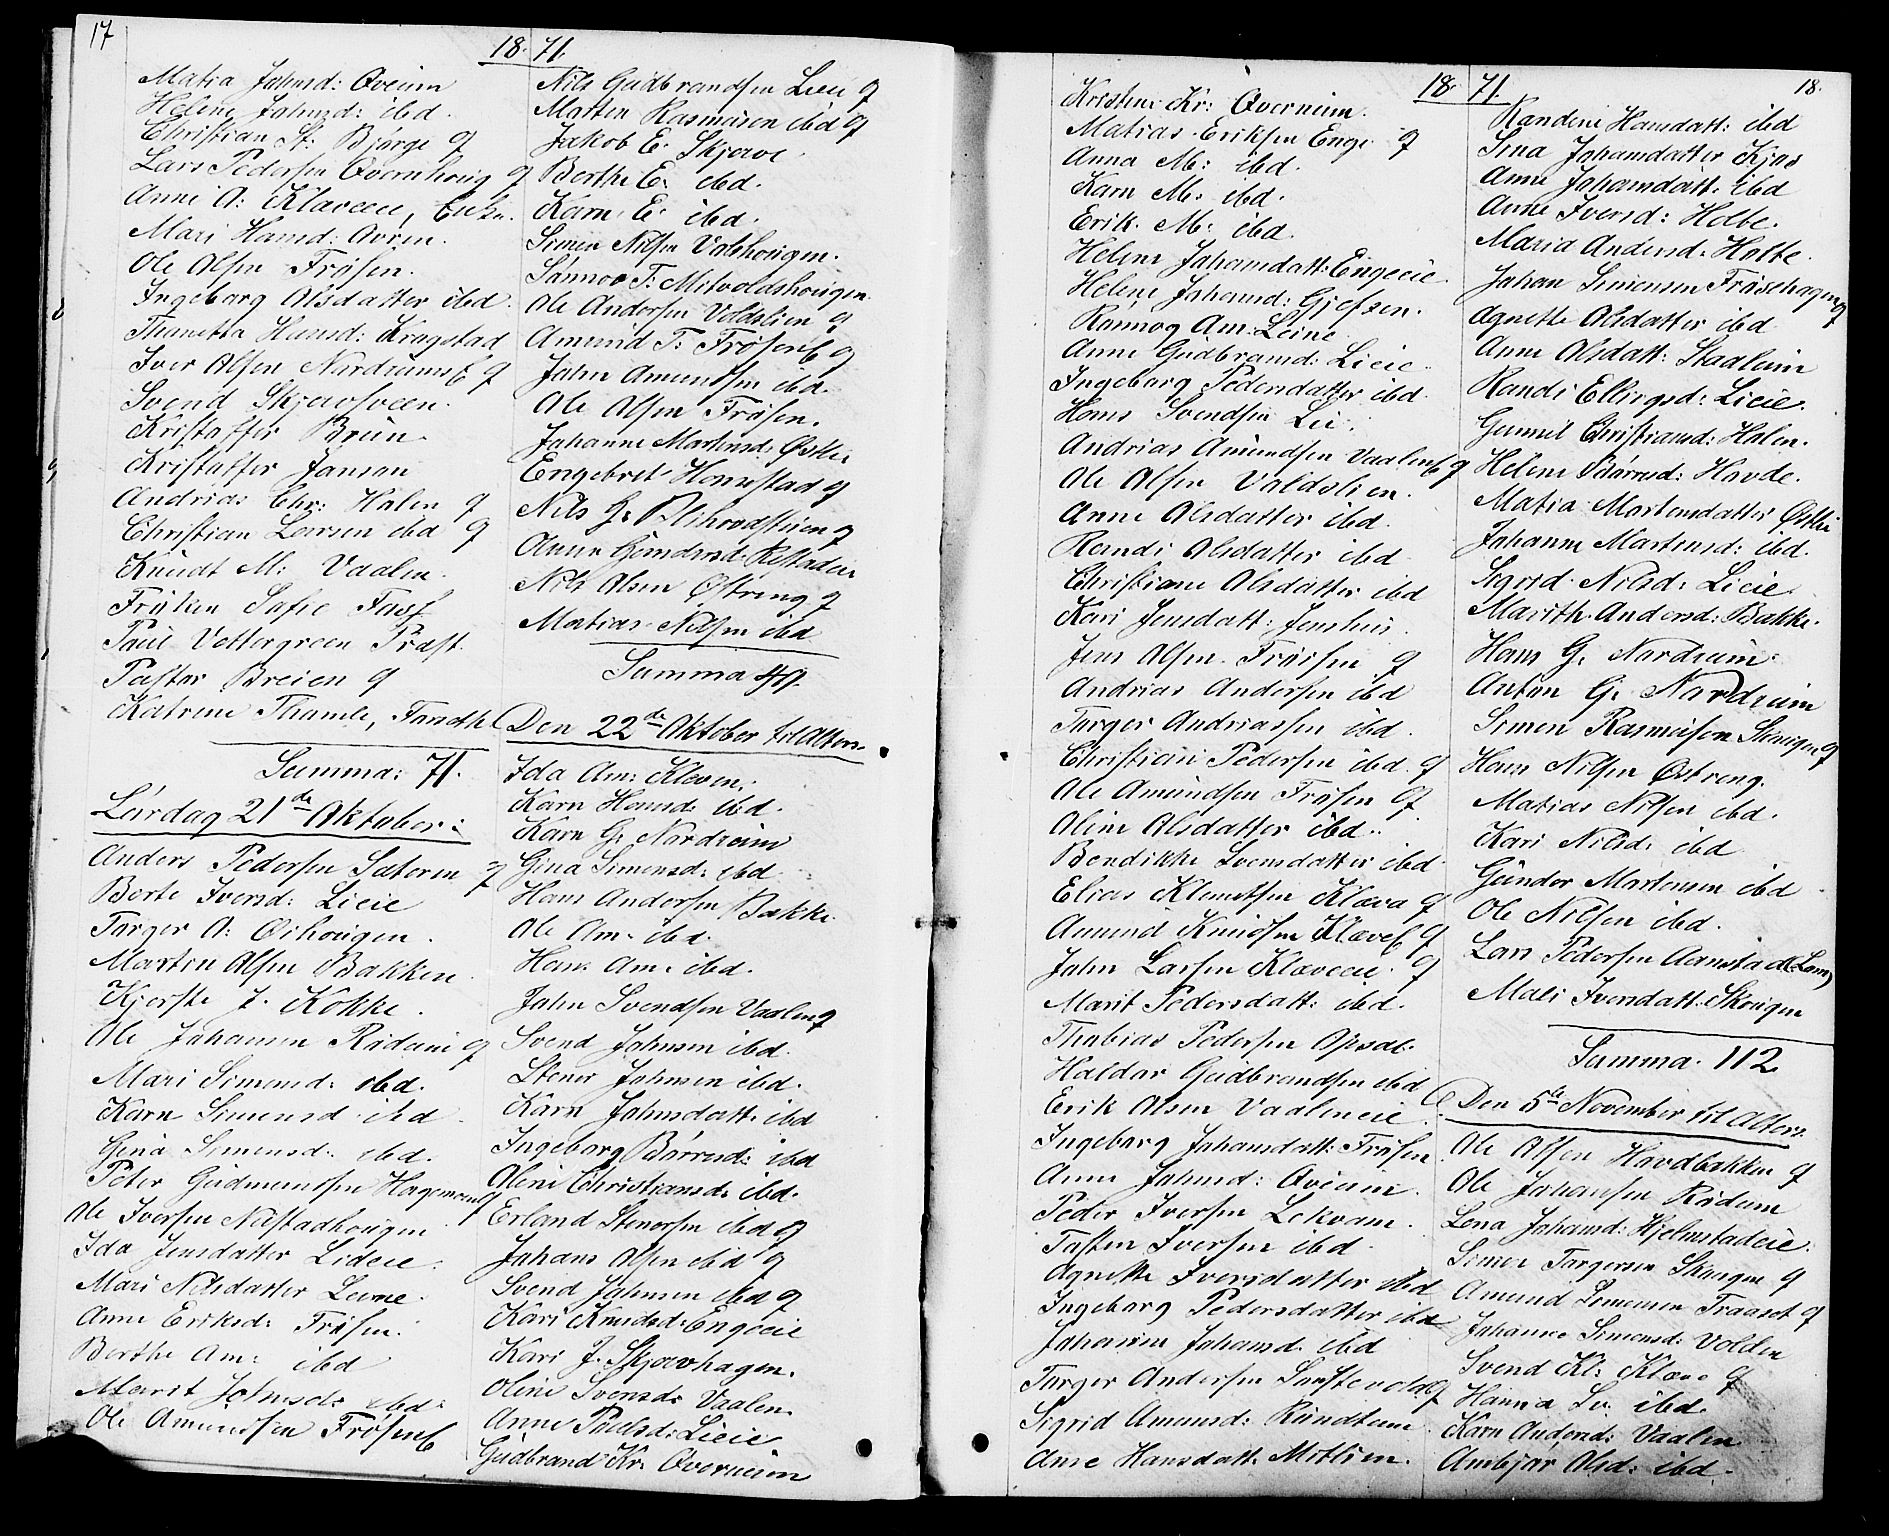 17
18 71.
Matia Johnsd: Øveium
Helene Johnsd: ibd.
Christian St: Bjørge g
Lars Pedersen Øvernhoug g
Anne A: Klæveeie, Enke.
Mari Hansd:
Ole Olsen Frøsen.
Ingeborg Olsdatter ibd.
Thaneta Hansd: Kragstad
Iver Olsen Nordrum g
Svend Skjævsveen.
Kristoffer Brün.
Kristoffer Janson
Andrias Chr: Holen g
Christian Larsen ibd g
Knudt M: Vaalen.
Frøken Sofie
Paul Vettergreen Præst.
Pastor Breien g
Katrine Thamle,
Summa: 71.
Lørdag 21de Oktober:
Anders Pedersen g
Berte Iversd: Lieie
Torger A: Ørhougen.
Martin Olsen Bakken.
Kjerste J. Kokke.
Ole Johansen Rødum g
Mari Simensd: ibd.
Karn Simensd ibd.
Gina Simensd: ibd.
Peter Gudmundsen Hagemoen g
Ole Iversen Nustadhougen
Ida Jensdatter Lideie.
Mari Nilsdatter Leine.
Anne Eriksd: Frøsen.
Berthe Am: ibd
Marit Johnsd: ibd.
Ole Amundsen Frøsen
Nils Gudbrandsen Lieie g
Morten Rasmusen ibd g
Jakob E. Skjæve
Berthe E. ibd.
Karn E. ibd.
Simen Nilsen Valshougen.
Sannov T: Mitvoldshougen
Ole Andersen Voldslien g
Amund T: Frøsen g
John Amundsen ibd.
Ole Olsen Frøsen.
Johanne Mortensd: Østli
Engebret Homstad g
Nils G: g
Anne
Nils Olsen Østreng g
Matias Nilsen ibd
Summa 49.
Den 22de Oktober til Alters.
Ida Am: Klæven.
Karn Hansd: ibd.
Karn G: Nordrum
Gina Simensd: ibd
Hans Andersen Bakke.
Ole Am: ibd.
Hans Am: ibd.
John Svendsen Vaalen g
Svend Johnsen ibd.
Stener Johnsen ibd.
Karn Johnsdatt: ibd
Ingeborg Børresd: ibd
Oline Christiansd: ibd.
Erland Stenersen ibd g
Johans Olsen ibd g
Svend Johnsen ibd g
Kari Knudsd: Engeeie
Kari J. Skjævhagen.
Oline Svensd: Vaalen.
Anne Paulsd: Lieie
Gudbrand Kr: Øverneim
18 71.
18.
Kristine Kr: Øverneim.
Matias Eriksen Enge g
Anna M: ibd.
Karn M: ibd.
Erik M: ibd.
Helene Johansdatt: Engeeie.
Helene Johansd: Gjefsen.
Rannog Am: Leine
Anne Gudbrandd: Lieie.
Ingeborg Pedersdatter ibd
Hans Svendsen Lie.
Andrias Amundsen Vaalen g
Ole Olsen Valdslien.
Anne Olsdatter ibd.
Randi Olsdatter ibd
Christiane Olsdatter ibd
Kari Jensdatt: Jenshus.
Jens Olsen Frøisen g
Andrias Andersen ibd
Torger Andriassen ibd.
Christian Pedersen ibd. g
Ole Amundsen Frøsen g
Oline Olsdatter ibd.
Bendikke Svensdatter ibd.
Elias Klemetsen Klæva g
Amund Knudsen Klæve g
John Larsen Klæveeie. g
Marit Pedersdatt: ibd.
Thobias Pedersen Opsal.
Haldor Gudbrandsen ibd
Erik Olsen Vaaleneie.
Ingeborg Johansdatt: Frøsen
Anne Johnsd: Øveium.
Peder Iversen Lekvam.
Tosten Iversen ibd.
Agnette Iversdatter ibd
Ingeborg Pedersdatter ibd
Johanne Johansd. ibd
Torger Andersen g
Sigrid Amundsd:
Anne Hansdatt. Mitlien.
Randine Hansdatt: ibd
Sina Johansdatter Kjøs
Anne Johansdatt: ibd
Anne Iversd: Holte.
Maria Andersd: Holte.
Johan Simensen Frøsehagen g
Agnette Olsdatter ibd
Anne Olsdatt:
Randi Ellingsd: Lieie.
Gunnil Christiansd: Holen.
Helene Børresd: Havde.
Matia Mortensdatter Østli
Johanne Mortensd: ibd.
Sigrid Nilsd: Lieie
Marith Andersd: Bakke.
Hans G. Nordrum.
Anton G. Nordrum
Simen Rasmusen Skougen g
Hans Nilsen Østreng.
Matias Nilsen ibd.
Kari Nilsd: ibd
Gunder Mortensen ibd.
Ole Nilsen ibd.
Lars Pedersen Aamstad (Lom)
Mali Iversdatt: Skougen
Summa. 112
Den 5te November til Alters.
Ole Olsen Havdbakken g
Ole Johansen Rødum
Lena Johansd: Hjelmstadeie.
Simen Torgersen Skaugen g
Amund Simensen Traaset g
Johanne Simensd: Volden
Svend Kl: Klæve g
Hanna Sv. ibd.
Karn Andersd: Vaalen
Ambjør Olsd: ibd.